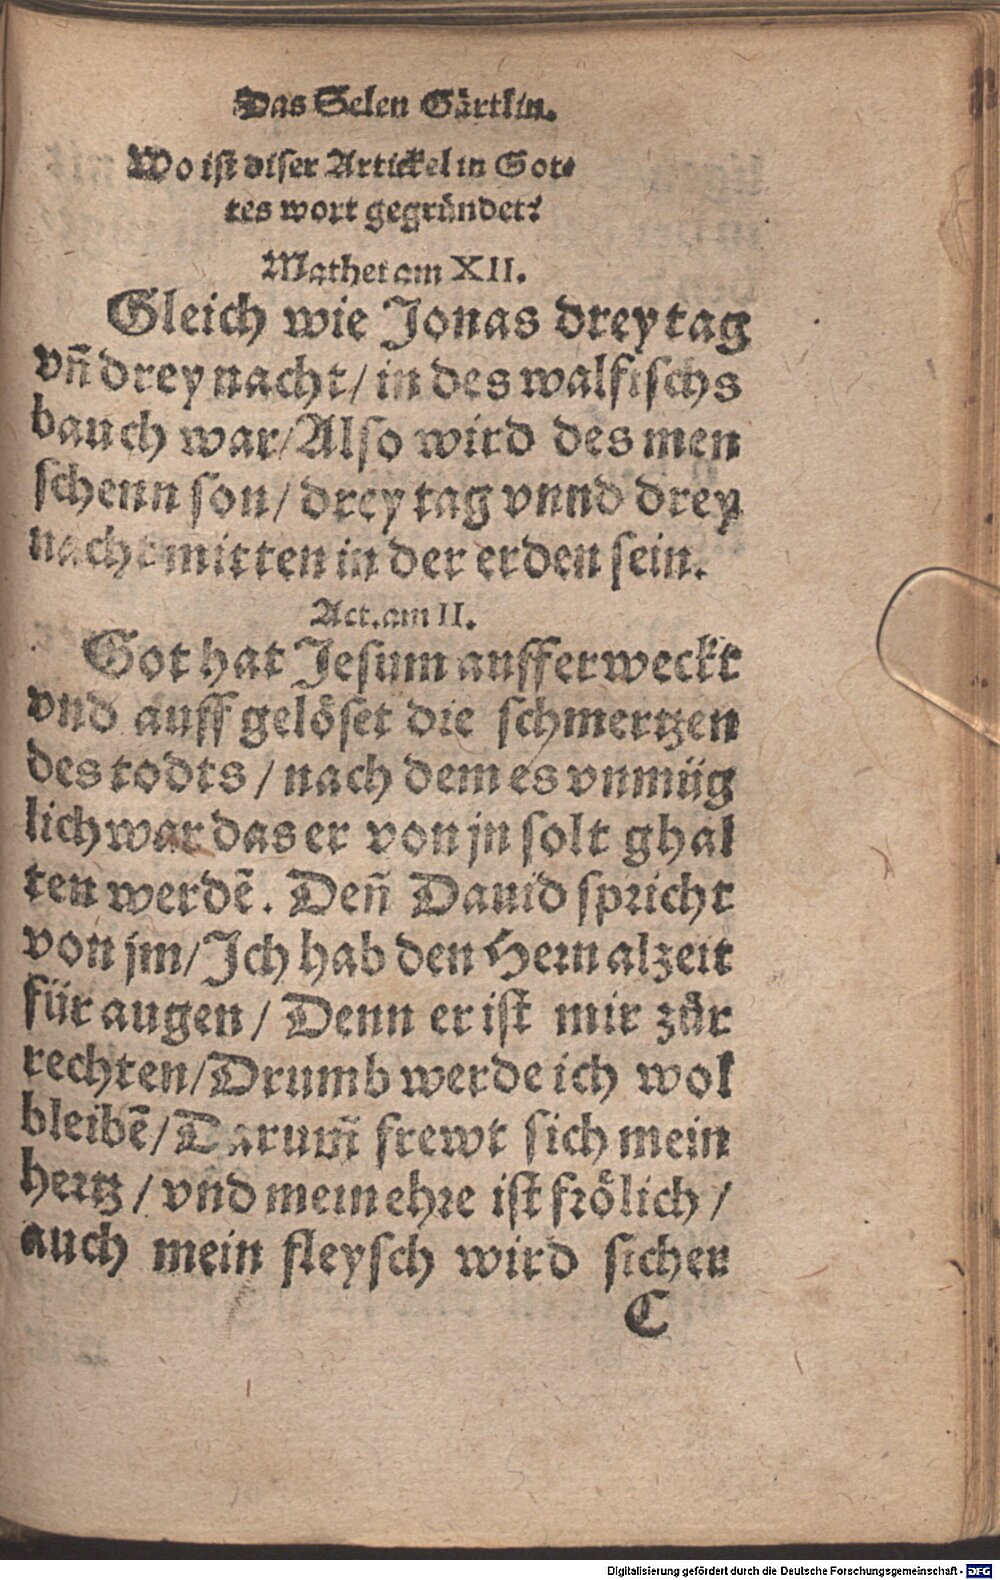 Das Selen Gärtlin.
Wo ist diser Artickel in Got⸗
tes wort gegründet?
Mathei am XII.
Gleich wie Jonas drey tag
vñ drey nacht / in des walfischs
bauch war / Also wird des men
schenn son / drey tag vnnd drey
nacht mitten in der erden sein.
Act. am II.
Got hat Jesum aufferweckt
vnd auff gelöset die schmertzen
des todts / nach dem es vnmüg
lich war das er von jn solt ghal
ten werdē. Deñ Dauid spricht
von jm / Ich hab den Hern alzeit
für augen / Denn er ist mir zůr
rechten / Drumb werde ich wol
bleibē / Darum̄ frewt sich mein
hertz / vnd mein ehre ist frölich /
auch mein fleysch wird sicher
C
Digitalisierung gefördert durch die Deutsche Forschungsgemeinschaft - DFG